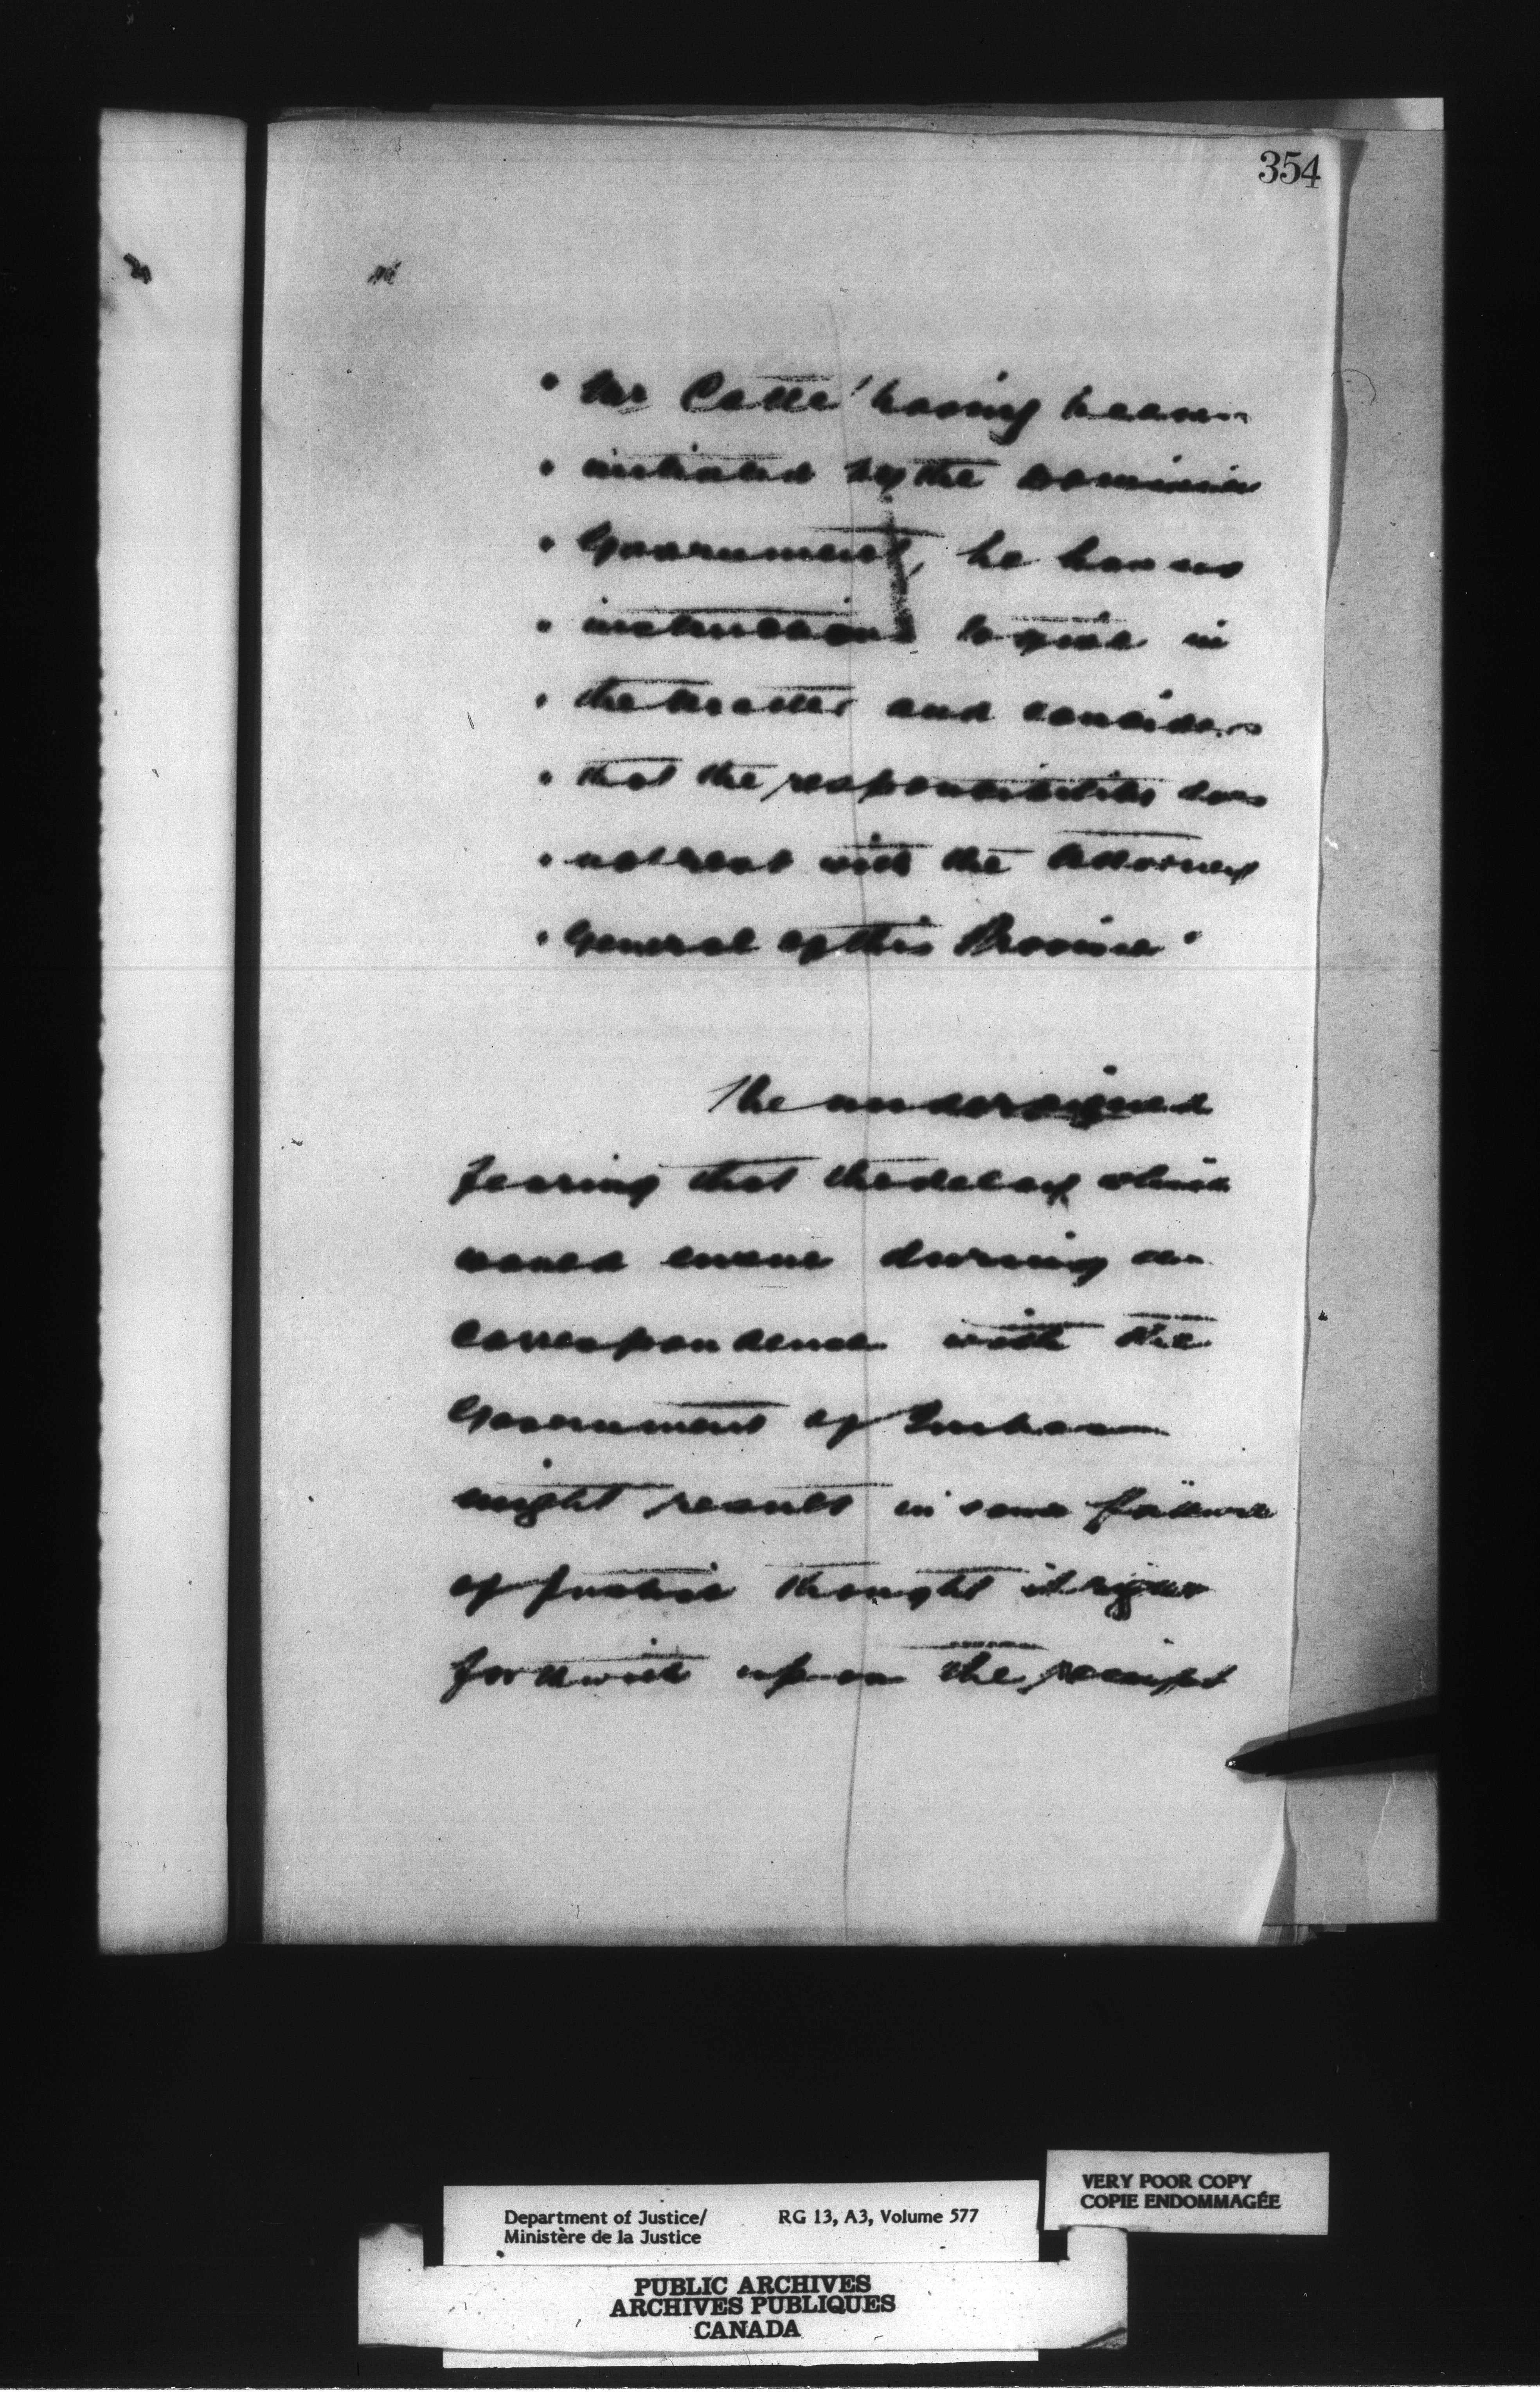 354
" Mr Cotté having been
" initiated by the Dominion
" Government, he has no
" instructions to give in
" the matter and considers
" that the responsibility does
" not rest with the Attorney
" General of this Province "
The undersigned
fearing that the delay which
would ensue during a
correspondence with the
Government of Quebec
might result in some failure
of justice thought it right
forthwith upon the receipt
Department of Justice/ RG 13, A3, Volume 577
Ministère de la Justice
VERY POOR COPY
COPIE ENDOMMAGÉE
PUBLIC ARCHIVES
ARCHIVES PUBLIQUES
CANADA